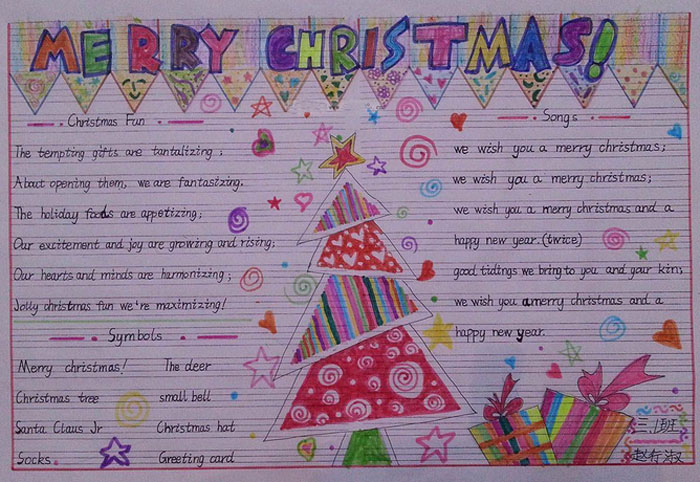 MERRY CHRISTMAS!
Christmas Fun
The tempting gifts are tantalizing;
About opening them, we are fantasizing.
The holiday foods are appetizing;
Our excitement and joy are growing and rising;
Our hearts and minds are harmonizing;
Jolly christmas fun we're maximizing!
Symbols
Merry christmas! The deer
Christmas tree small bell
Santa Claus Jr Christmas hat
Socks. Greeting card
Songs
we wish you a merry christmas;
we wish you a merry christmas;
we wish you a merry christmas and a
happy new year.(twice)
good tidings we bring to you and your kin;
we wish you a merry christmas and a
happy new year.
三.1班